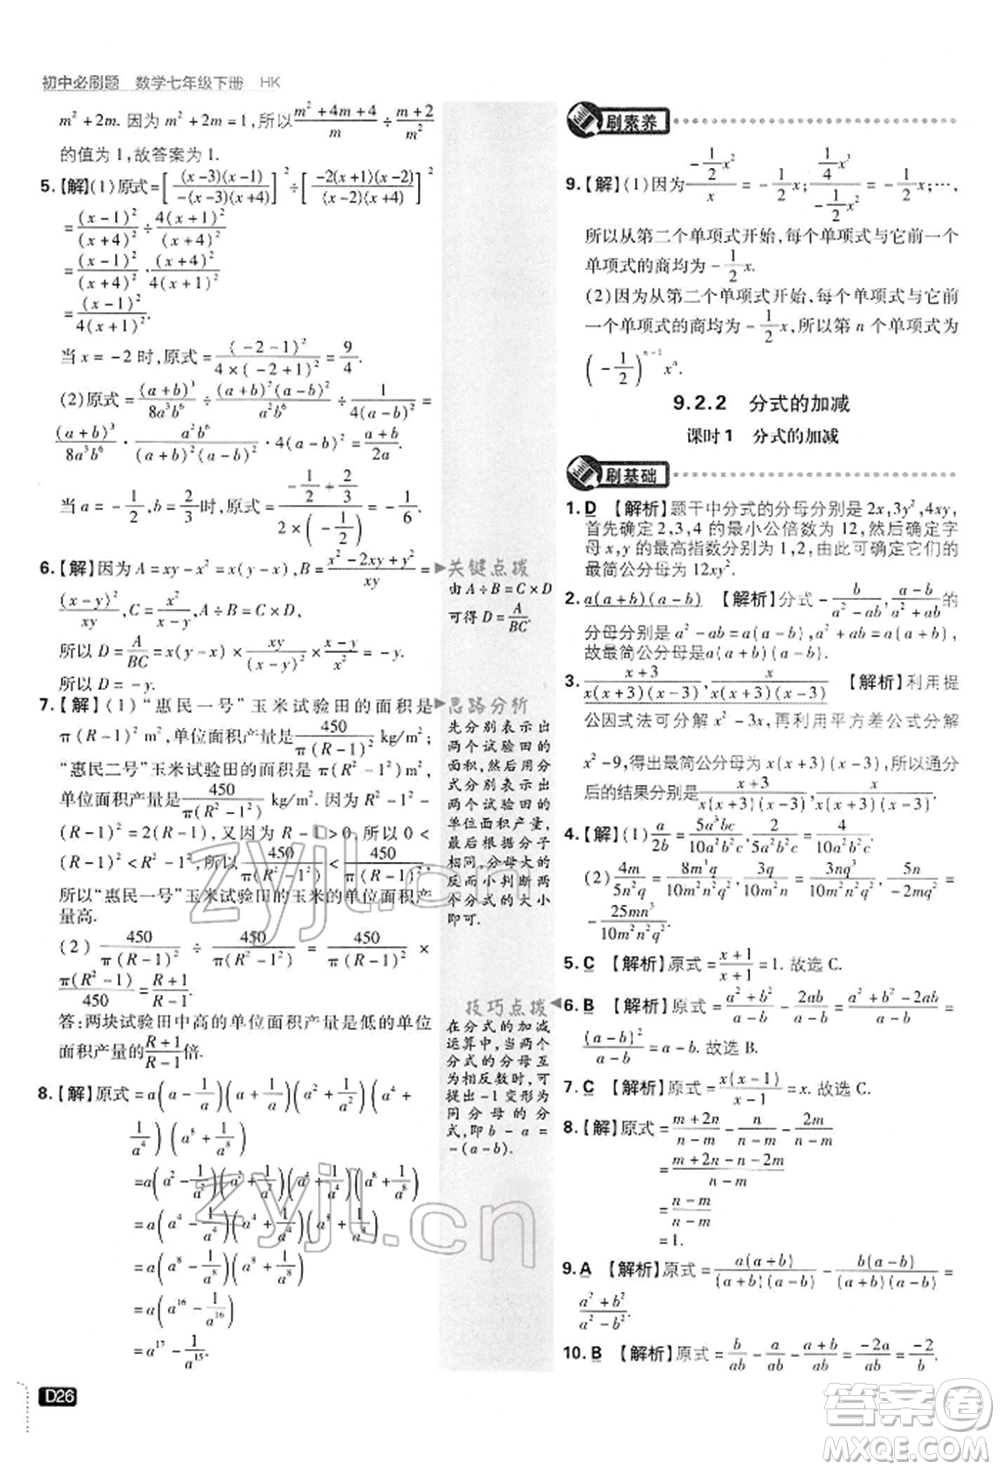 初中必刷题 数学七年级下册 HK
m²+2m. 因为 m²+2m=1,所以 (m²+4m+4)/m ÷ (m+2)/m²
的值为 1,故答案为 1.
5.【解】(1)原式=[(x-3)(x-1)/-(x-3)(x+4)]²÷[-2(x+1)(x-2)/(x-2)(x+4)]²
=(x-1)²/(x+4)²÷4(x+1)²/(x+4)²
=(x-1)²/(x+4)²·(x+4)²/4(x+1)²
=(x-1)²/4(x+1)².
当 x=-2 时,原式=(-2-1)²/4×(-2+1)²=9/4.
(2)原式=(a+b)³/8a³b⁶÷(a+b)²(a-b)²/a²b⁶÷(a+b)/4(a-b)²=
(a+b)³/8a³b⁶·a²b⁶/(a+b)²(a-b)²·4(a-b)²/(a+b)=1/2a.
当 a=-1/2,b=2/3时,原式=1/(2×(-1/2))=-1.
6.【解】因为 A=xy-x²=x(y-x),B=(x²-2xy+y²)/xy=
(x-y)²/xy,C=x²/(x-y),A÷B=C×D,
所以 D=A/BC=x(y-x)×xy/(x-y)²×(x-y)/x²=-y.
所以 D=-y.
7.【解】(1)“惠民一号”玉米试验田的面积是
π(R-1)² m²,单位面积产量是450/π(R-1)² kg/m²;
“惠民二号”玉米试验田的面积是 π(R²-1)m²,
单位面积产量是450/π(R²-1) kg/m². 因为 R²-1-
(R-1)²=2(R-1),又因为 R-1>0,所以 0<
(R-1)²<R²-1,所以450/π(R²-1)<450/π(R-1)².
所以“惠民一号”试验田的玉米的单位面积产
量高.
(2)450/π(R-1)²÷450/π(R²-1)=450/π(R-1)²×
π(R²-1)/450=(R+1)/(R-1).
答:两块试验田中高的单位面积产量是低的单位
面积产量的(R+1)/(R-1)倍.
8.【解】原式=a(a-1/a)(a+1/a)(a²+1/a²)(a⁴+
1/a⁴)(a⁸+1/a⁸)
=a(a²-1/a²)(a²+1/a²)(a⁴+1/a⁴)(a⁸+1/a⁸)
=a(a⁴-1/a⁴)(a⁴+1/a⁴)(a⁸+1/a⁸)
=a(a⁸-1/a⁸)(a⁸+1/a⁸)
=a(a¹⁶-1/a¹⁶)
=a¹⁷-1/a¹⁵.
D26
关键点拨
由 A÷B=C×D
可得 D=A/BC.
思路分析
先分别表示出
两个试验田的
面积,然后用分
式分别表示出
两个试验田的
单位面积产量,
最后根据分子
相同,分母大的
反而小判断两
个分式的大小
即可.
技巧点拨
在分式的加减
运算中,当两个
分式的分母互
为相反数时,可
提出-1变形为
同分母的分
式,即 b-a=
-(a-b).
刷素养
9.【解】(1)因为(-1/2x²)/x=-1/2x,(1/4x³)/(-1/2x²)=-1/2x;…,
所以从第二个单项式开始,每个单项式与它前一个
单项式的商均为-1/2x.
(2)因为从第二个单项式开始,每个单项式与它前
一个单项式的商均为-1/2x,所以第 n 个单项式为
(-1/2)ⁿ⁻¹xⁿ.
9.2.2 分式的加减
课时1 分式的加减
刷基础
1. D 【解析】题干中分式的分母分别是 2x,3y²,4xy,
首先确定 2,3,4 的最小公倍数为 12,然后确定字
母 x,y 的最高指数分别为 1,2,由此可确定它们的
最简公分母为 12xy².
2. a(a+b)(a-b) 【解析】分式-b/(a²-ab),(a-b)/(a²+ab)的
分母分别是 a²-ab=a(a-b),a²+ab=a(a+b),
故最简公分母是 a(a+b)(a-b).
3. (x+3)/x(x+3)(x-3),x/x(x+3)(x-3) 【解析】利用提
公因式法可分解 x²-3x,再利用平方差公式分解
x²-9,得出最简公分母为 x(x+3)(x-3),所以通分
后的结果分别是(x+3)/x(x+3)(x-3),x/x(x+3)(x-3).
4.【解】(1)a/2b=5a³bc/10a²b²c,2/5a²b²c=4/10a²b²c.
(2)4m/5n²q=8m³q/10m²n²q²,-5n/2mq²=
-25mn³/10m²n²q².
5. C 【解析】原式=(x+1)/(x+1)=1. 故选 C.
6. B 【解析】原式=(a²+b²)/(a-b)-2ab/(a-b)=(a²+b²-2ab)/(a-b)=
(a-b)²/(a-b)=a-b. 故选 B.
7. C 【解析】原式=(x²-x)/(x-1)=x(x-1)/(x-1)=x. 故选 C.
8.【解】原式=(m+2n)/(n-m)+n/(n-m)-2m/(n-m)
=(m+2n-n-2m)/(n-m)
=(n-m)/(n-m)
=1.
9. A 【解析】原式=a(a+b)/(a+b)(a-b)-b(a-b)/(a+b)(a-b)=
(a²+b²)/(a²-b²).
10. B 【解析】原式=b/ab-a/ab-(a+b)/ab=-2a/ab=-2/b.
zyjl.cn
zyjl.cn
答案圈
MXQE.COM